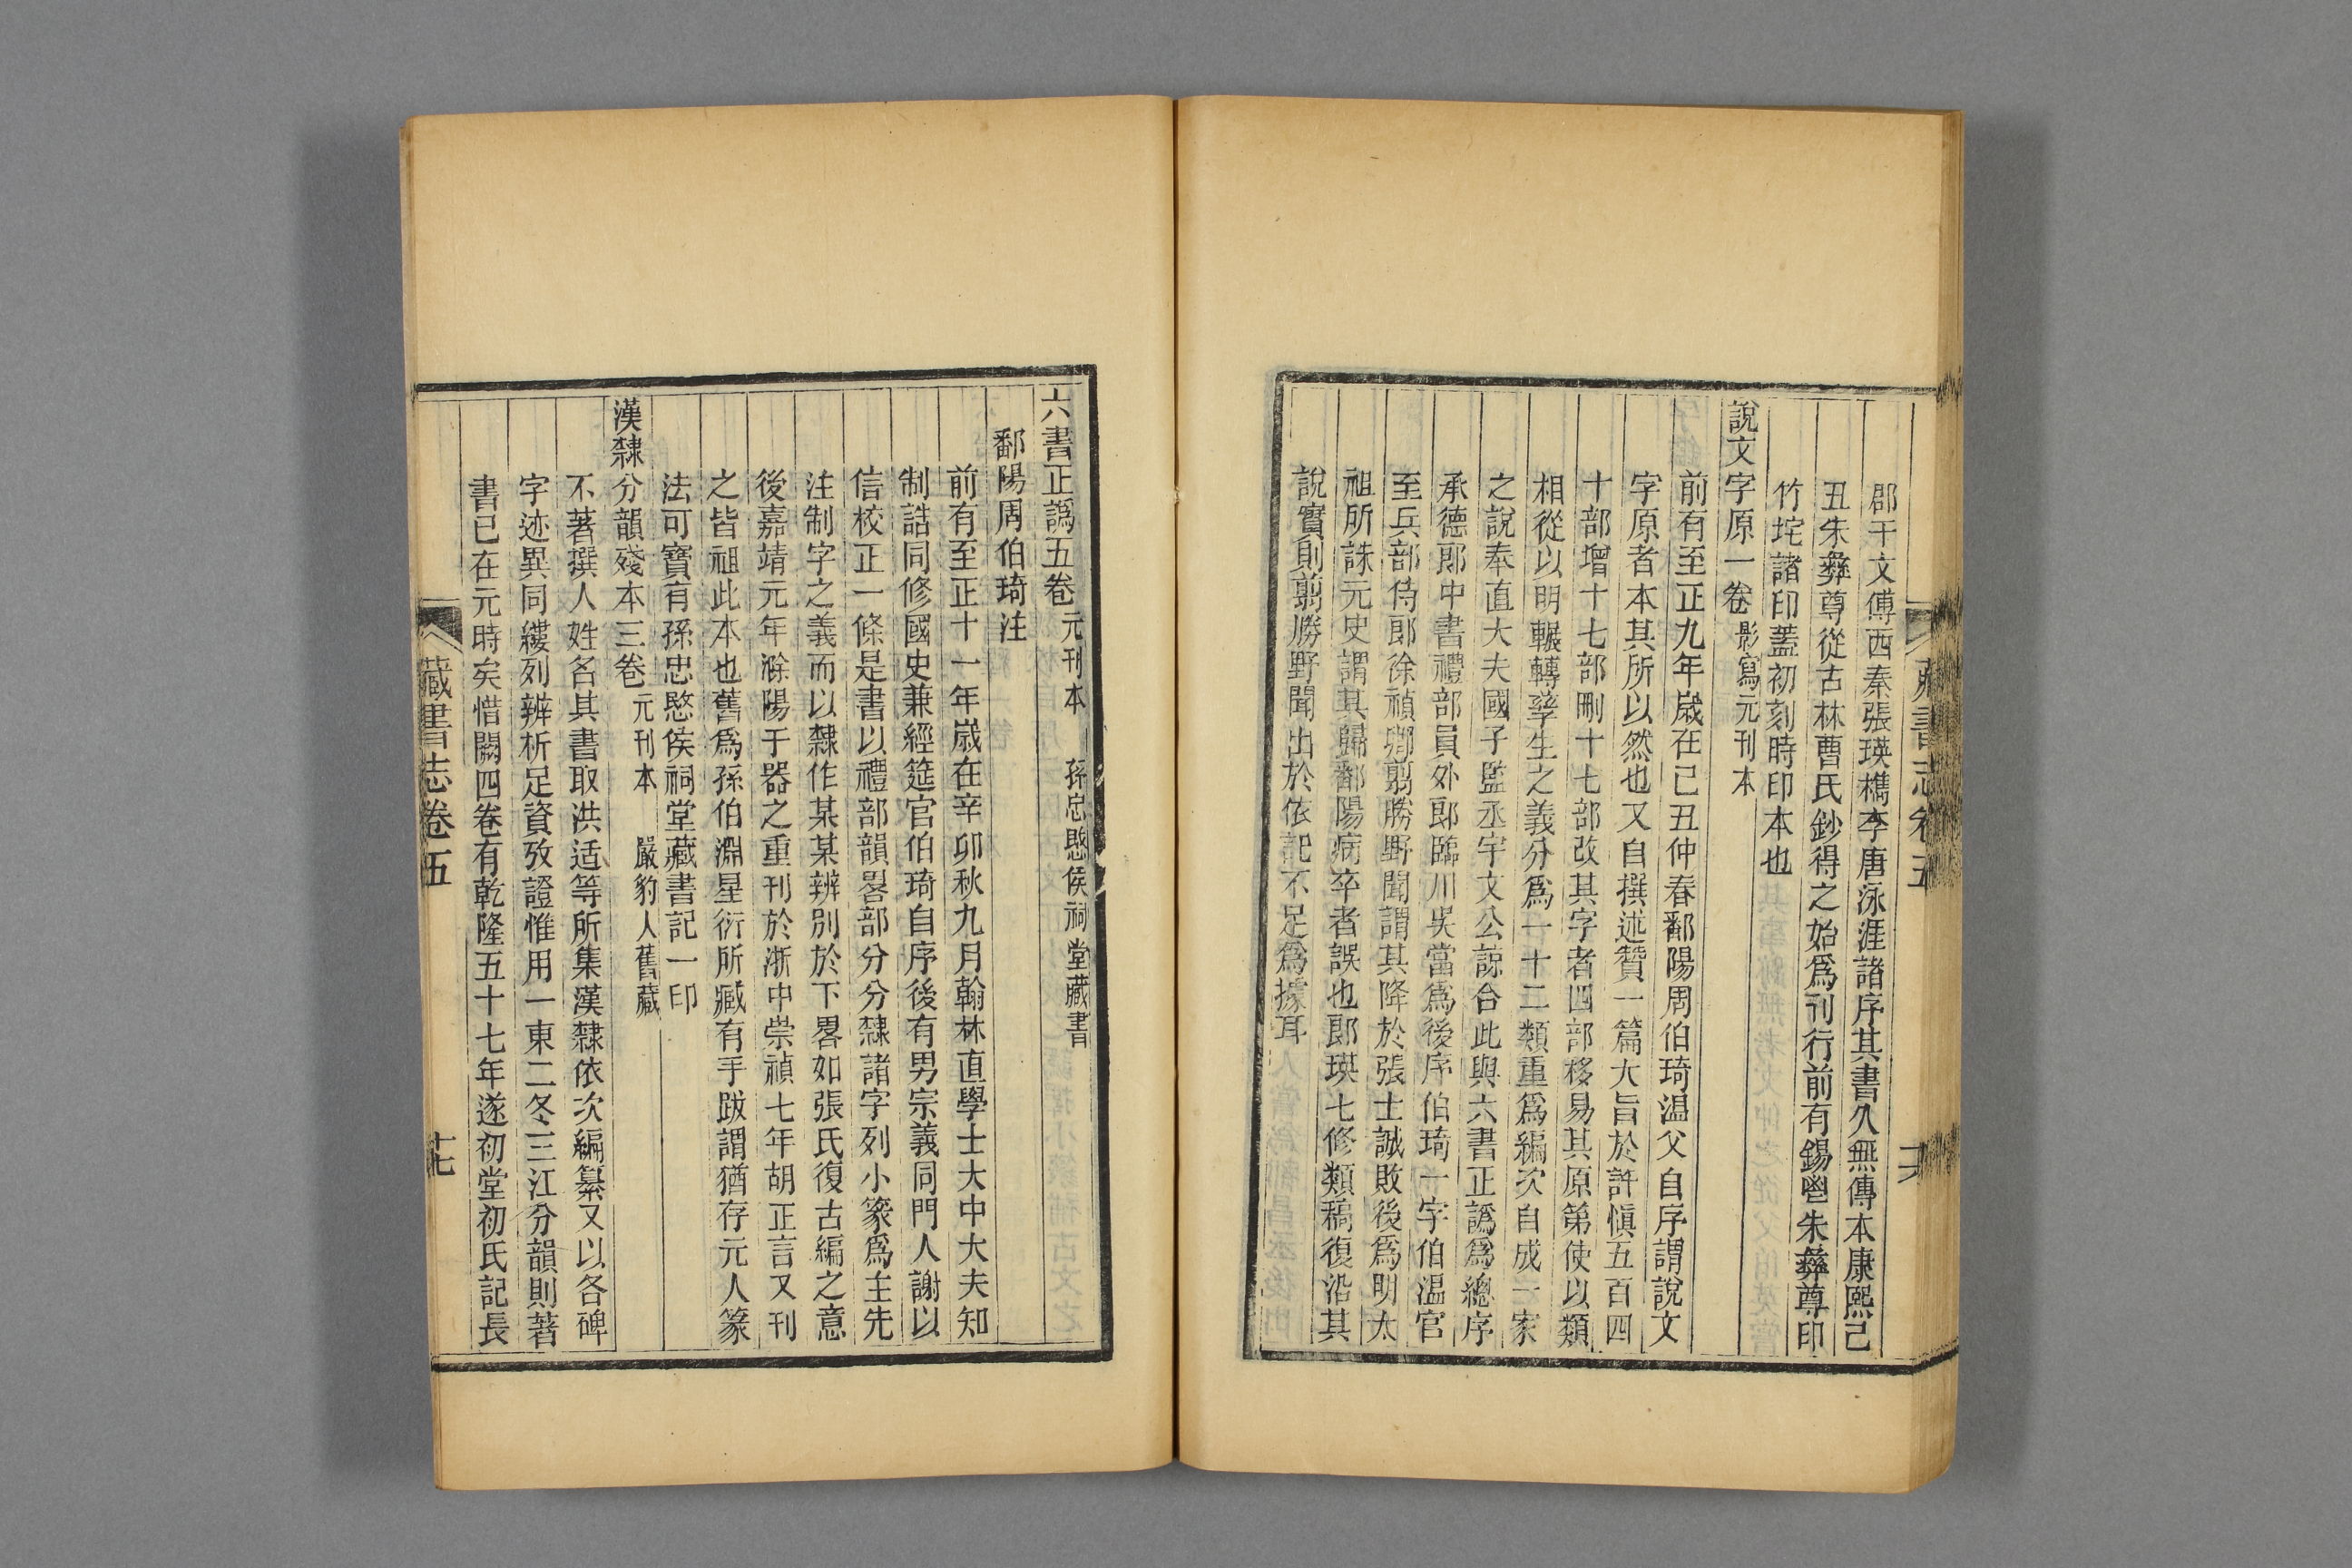 郡干文傅西秦張瑛檇李唐泳涯諸序其書久無傳本康熙己
丑朱彝尊從古林曹氏鈔得之始爲刊行前有錫鬯朱彝尊印
竹垞諸印蓋初刻時印本也
說文字原一卷影寫元刊本
前有至正九年歲在己丑仲春鄱陽周伯琦温父自序謂說文
字原者本其所以然也又自撰述贊一篇大旨於許愼五百四
十部增十七部刪十七部改其字者四部移易其原第使以類
相從以明輾轉孳生之義分爲一十二類重爲編次自成一家
之說奉直大夫國子監丞宇文公諒合此與六書正譌爲總序
承德郎中書禮部員外郎臨川吳當爲後序伯琦一字伯温官
至兵部侍郎徐禎卿翦勝野聞謂其降於張士誠敗後爲明太
祖所誅元史謂其歸鄱陽病卒者誤也郎瑛七修類稿復沿其
說實則翦勝野聞出於依記不足爲據耳
藏書志卷五
十六
六書正譌五卷元刊本 孫忠愍侯祠堂藏書
鄱陽周伯琦注
前有至正十一年歲在辛卯秋九月翰林直學士大中大夫知
制誥同修國史兼經筵官伯琦自序後有男宗義同門人謝以
信校正一條是書以禮部韻畧部分分隸諸字列小篆爲主先
注制字之義而以隸作某某辨別於下畧如張氏復古編之意
後嘉靖元年滁陽于器之重刊於浙中崇禎七年胡正言又刊
之皆祖此本也舊爲孫伯淵星衍所藏有手跋謂猶存元人篆
法可寶有孫忠愍侯祠堂藏書記一印
漢隸分韻殘本三卷元刊本 嚴豹人舊藏
不著撰人姓名其書取洪适等所集漢隸依次編纂又以各碑
字迹異同縷列辨析足資攷證惟用一東二冬三江分韻則著
書已在元時矣惜闕四卷有乾隆五十七年遂初堂初氏記長
藏書志卷五
十七